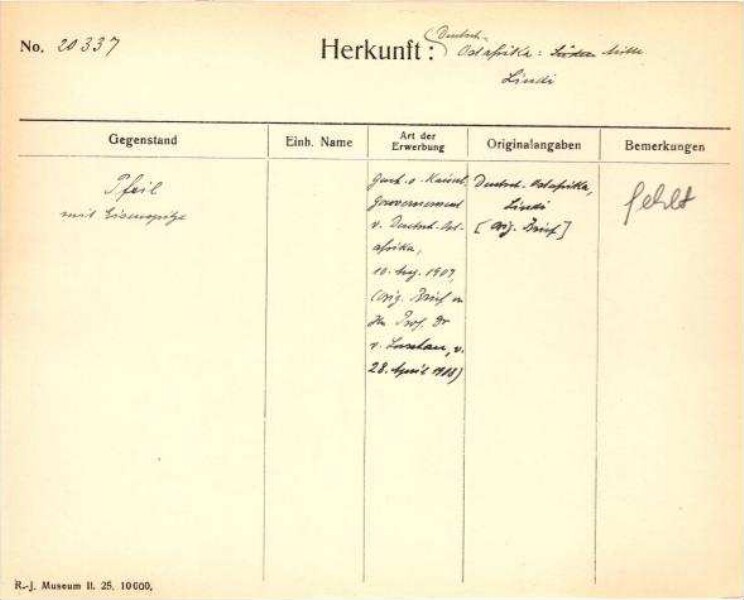 No. 20337
Herkunft: Deutsch-
Ostafrika: Süden Mitte
Lindi
Gegenstand
Einh. Name
Art der
Erwerbung
Originalangaben
Bemerkungen
Pfeil
mit Eisenspitze
Kaiserl.
Gouvernement
v. Deutsch-Ost-
afrika,
10. Aug. 1907,
(Orig. Brief v.
Hn. Prof. Dr
v. Luschau, v.
28. April 1908)
Deutsch-Ostafrika,
Lindi
[Orig. Brief]
fehlt
R.-J. Museum II. 25. 10000.